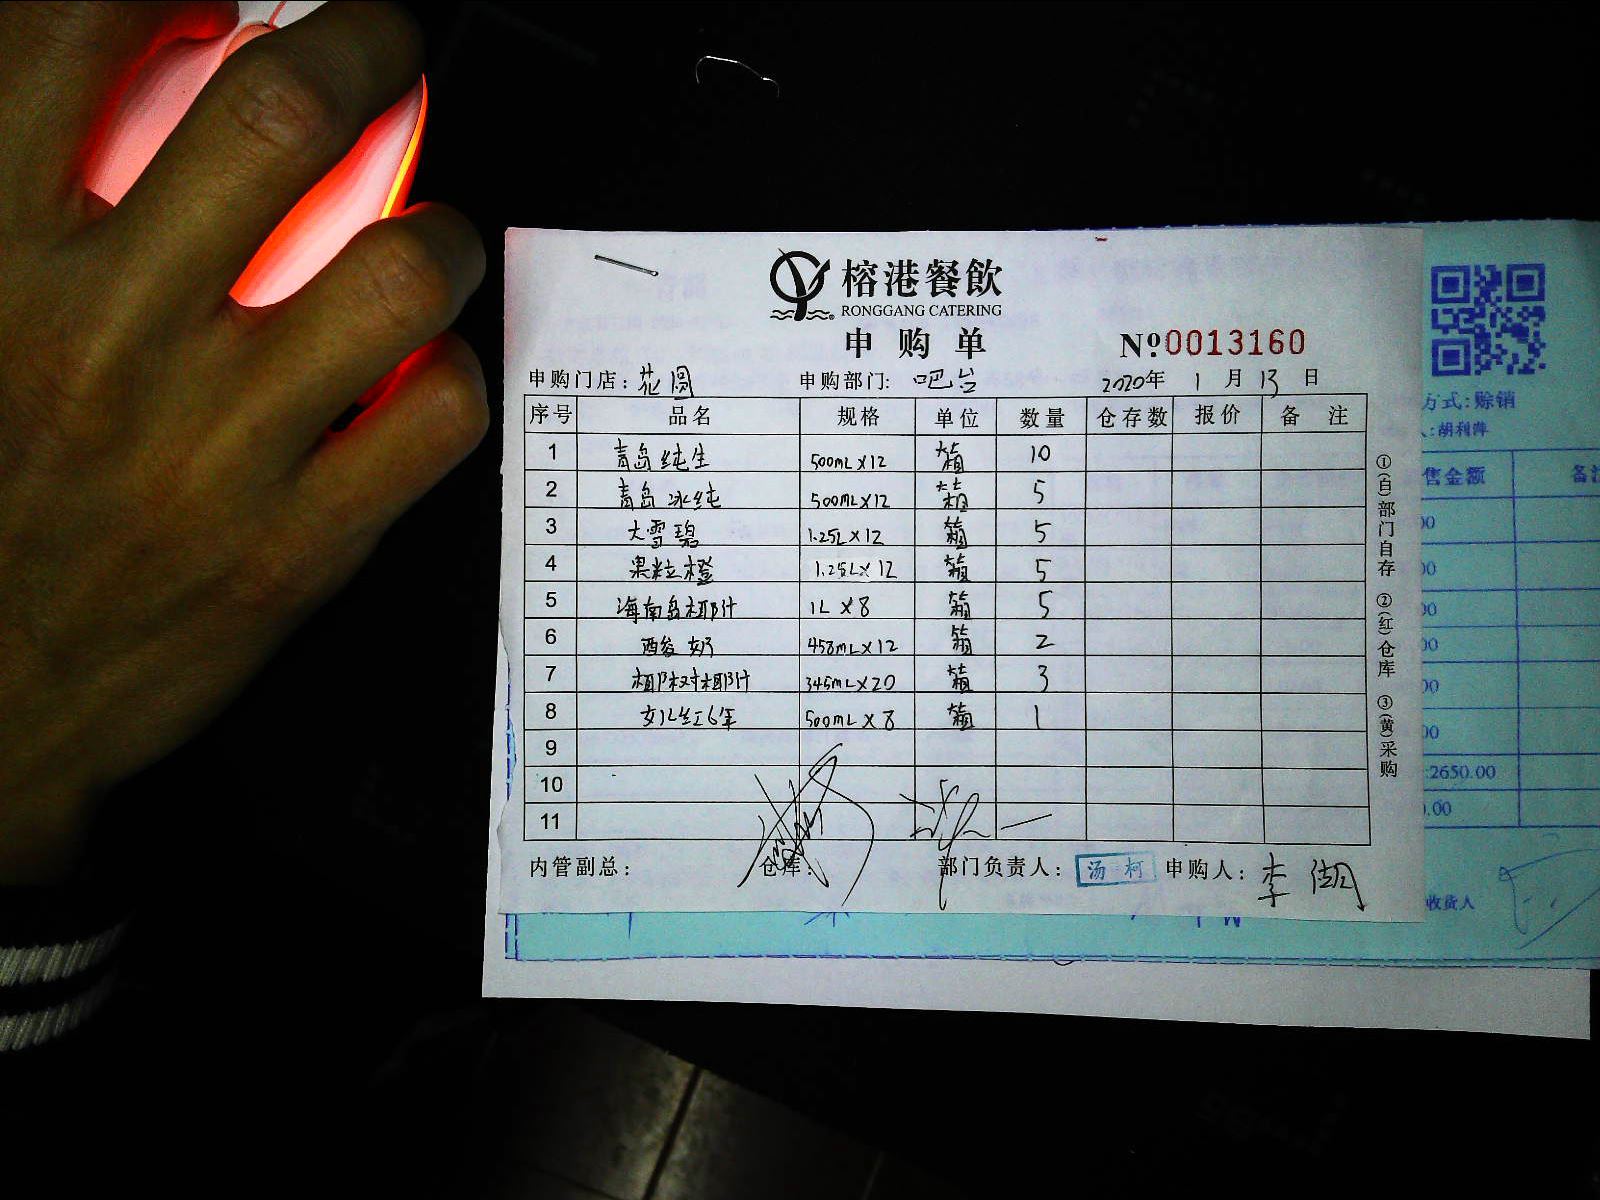 榕港餐飲
RONGGANG CATERING
申购单
№ 0013160
申购门店: 花圆 申购部门: 吧台 2020年 1月 13日
序号 品名 规格 单位 数量 仓存数 报价 备注
1 青岛纯生 500mL×12 箱 10
2 青岛冰纯 500mL×12 箱 5
3 大雪碧 1.25L×12 箱 5
4 果粒橙 1.25L×12 箱 5
5 海南岛椰汁 1L×8 箱 5
6 酸奶 458mL×12 箱 2
7 椰树椰汁 345mL×20 箱 3
8 女儿红6年 500mL×8 箱 1
9
10
11
内管副总: 仓库: 部门负责人: 汤柯 申购人: 李
①(白)部门自存 ②(红)仓库 ③(黄)采购
方式:赊销
人:胡利萍
售金额 备注
00
00
00
00
00
00
:2650.00
0.00
收货人